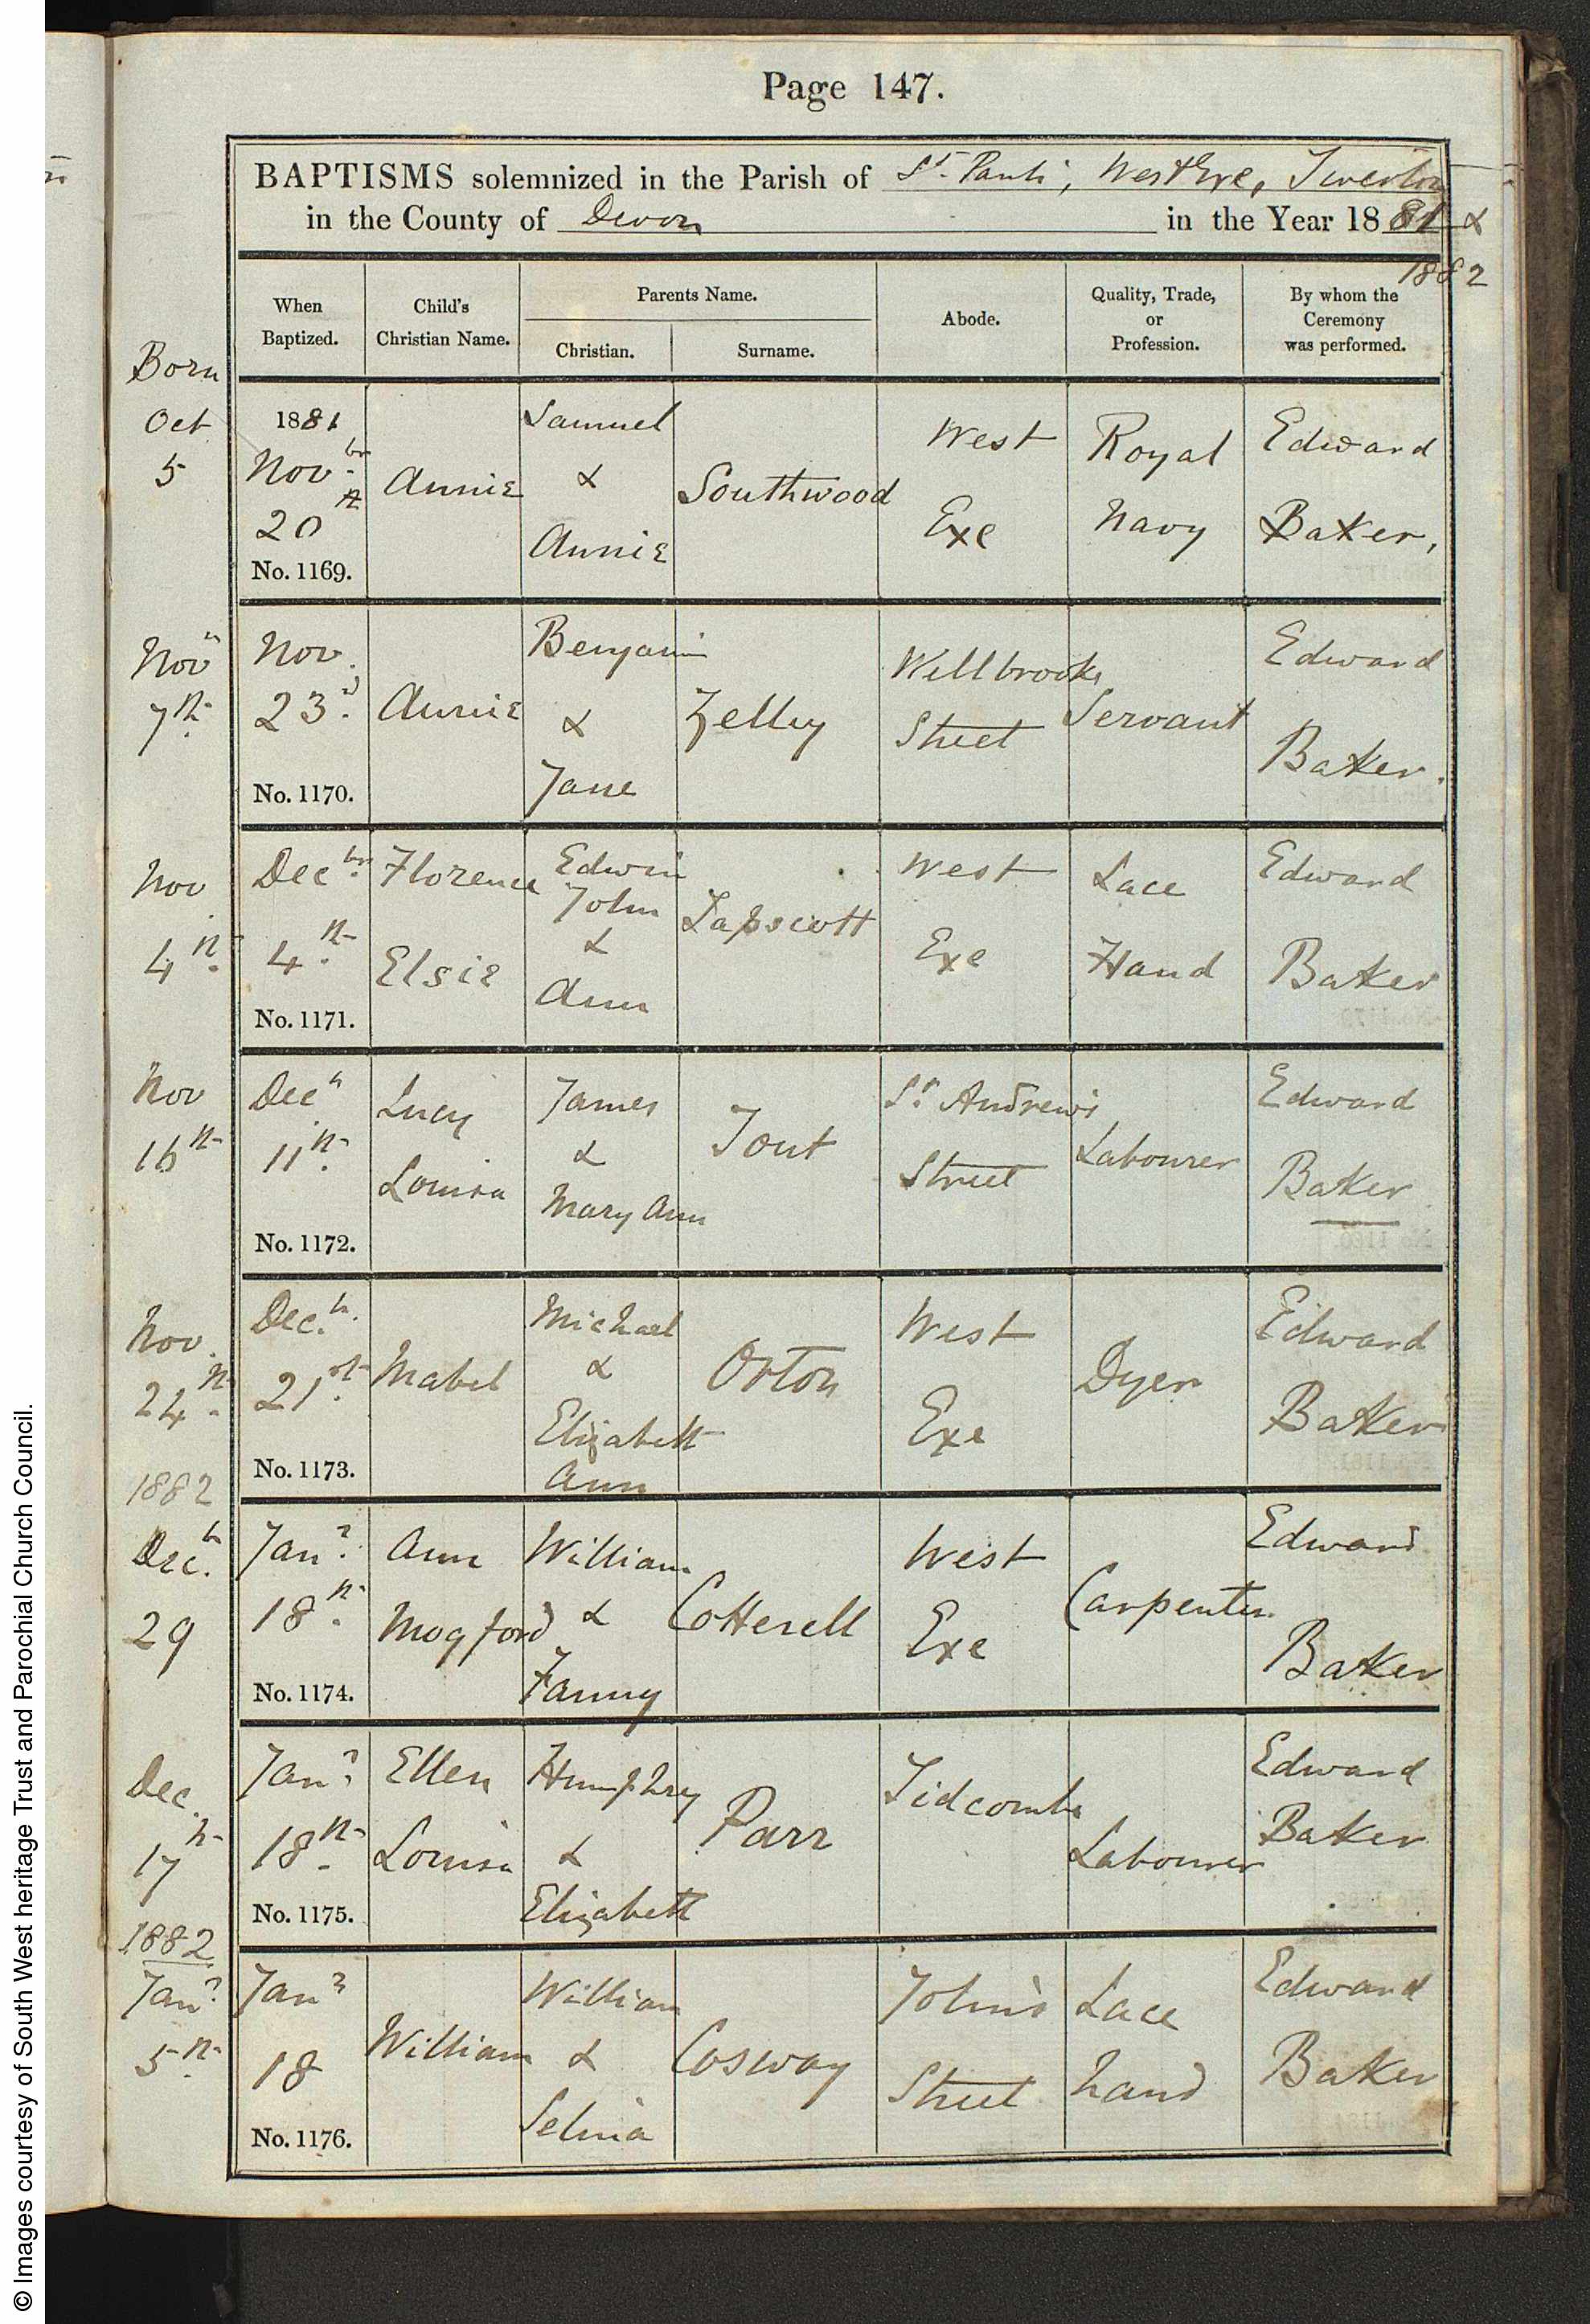 Page 147.
BAPTISMS solemnized in the Parish of St. Paul's, West Exe, Tiverton
in the County of Devon in the Year 1881 &
1882
When Baptized.
Child's Christian Name.
Parents Name.
Christian.
Surname.
Abode.
Quality, Trade, or Profession.
By whom the Ceremony was performed.
Born
Oct 5
1881
Novbr. 20th
No. 1169.
Annie
Samuel & Annie
Southwood
West Exe
Royal Navy
Edward Baker,
Nov 7th.
Nov. 23d.
No. 1170.
Annie
Benjamin & Jane
Zelley
Wellbrook Street
Servant
Edward Baker.
Nov 4th.
Decbr. 4th.
No. 1171.
Florence Elsie
Edwin John & Ann
Tapscott
West Exe
Lace Hand
Edward Baker
Nov 16th
Decr 11th.
No. 1172.
Lucy Louisa
James & Mary Ann
Tout
St. Andrew's Street
Labourer
Edward Baker
Nov. 24th.
Decr. 21st.
No. 1173.
Mabel
Michael & Elizabeth Ann
Orton
West Exe
Dyer
Edward Baker
1882
Decr. 29
Jany. 18th.
No. 1174.
Ann Mogford
William & Fanny
Cotterell
West Exe
Carpenter.
Edward Baker
Dec. 17th
Jany. 18th.
No. 1175.
Ellen Louisa
Humphrey & Elizabeth
Parr
Tidcombe
Labourer
Edward Baker
1882
Jany. 5th.
Jany 18
No. 1176.
William
William & Selina
Cosway
John's Street
Lace hand
Edward Baker
© Images courtesy of South West heritage Trust and Parochial Church Council.